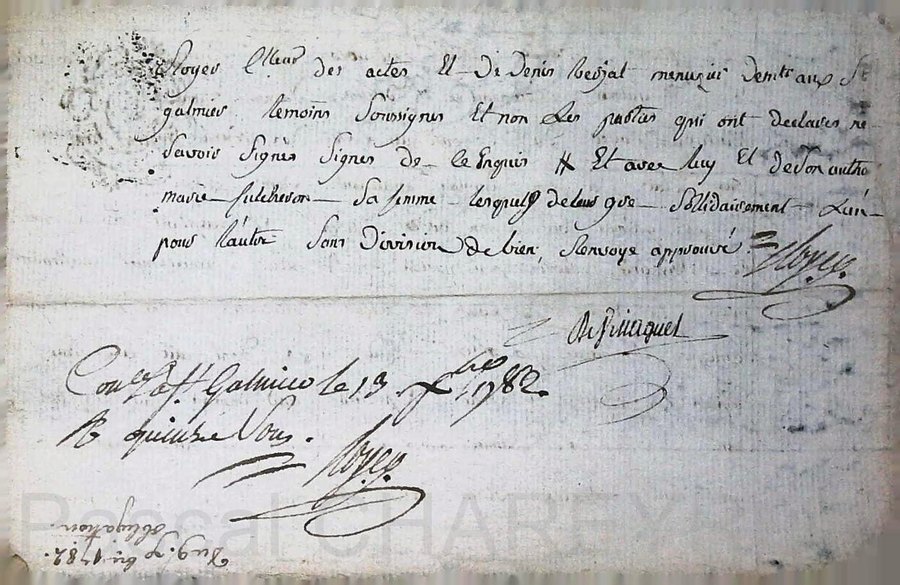 Royer C.lleur des actes Et De Denis menusier demt aux St
galmier temoins Soussignes Et non Les parties qui ont declares ne
Savoir Signes Signes de le Enquis # Et avec luy Et de Son autho
marie fulcheron Sa femme lesquels de leur gre Sollidairement L'un
pour l'autre Sans Division de bien, Renvoye approuvé Royer
Con.lé a St Galmier le 13 Xbre 1782.
R quinze Sous.
Royer
1782.
obligation
Pascal CHAREY